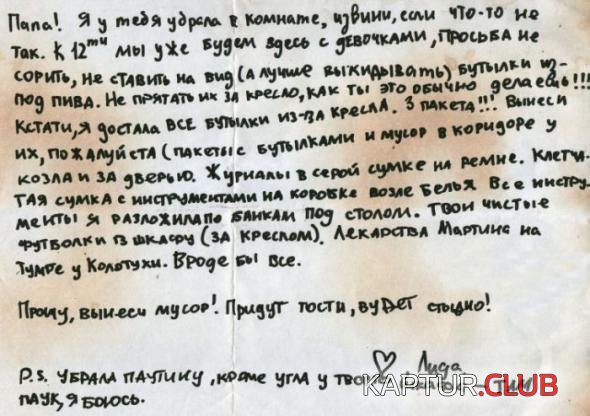 Папа! Я у тебя убрала в комнате, извини, если что-то не
так. К 12ти мы уже будем здесь с девочками, просьба не
сорить, не ставить на вид (а лучше выкидывать) бутылки из-
под пива. Не прятать их за кресло, как ты это обычно делаешь!!!
Кстати, я достала ВСЕ бутылки из-за кресла. 3 пакета!!! Вынеси
их, пожалуйста (пакеты с бутылками и мусор в коридоре у
козла и за дверью. Журналы в серой сумке на ремне. Клетча-
тая сумка с инструментами на коробке возле белья. Все инстру-
менты я разложила по банкам под столом. Твои чистые
футболки в шкафу (за креслом). Лекарства Мартина на
тумбе у Колотухи. Вроде бы все.
Прошу, вынеси мусор! Придут гости, будет стыдно!
♡ Лида
P.S. убрала паутину, кроме угла у твоей
паук, я боюсь.
KAPTUR.CLUB